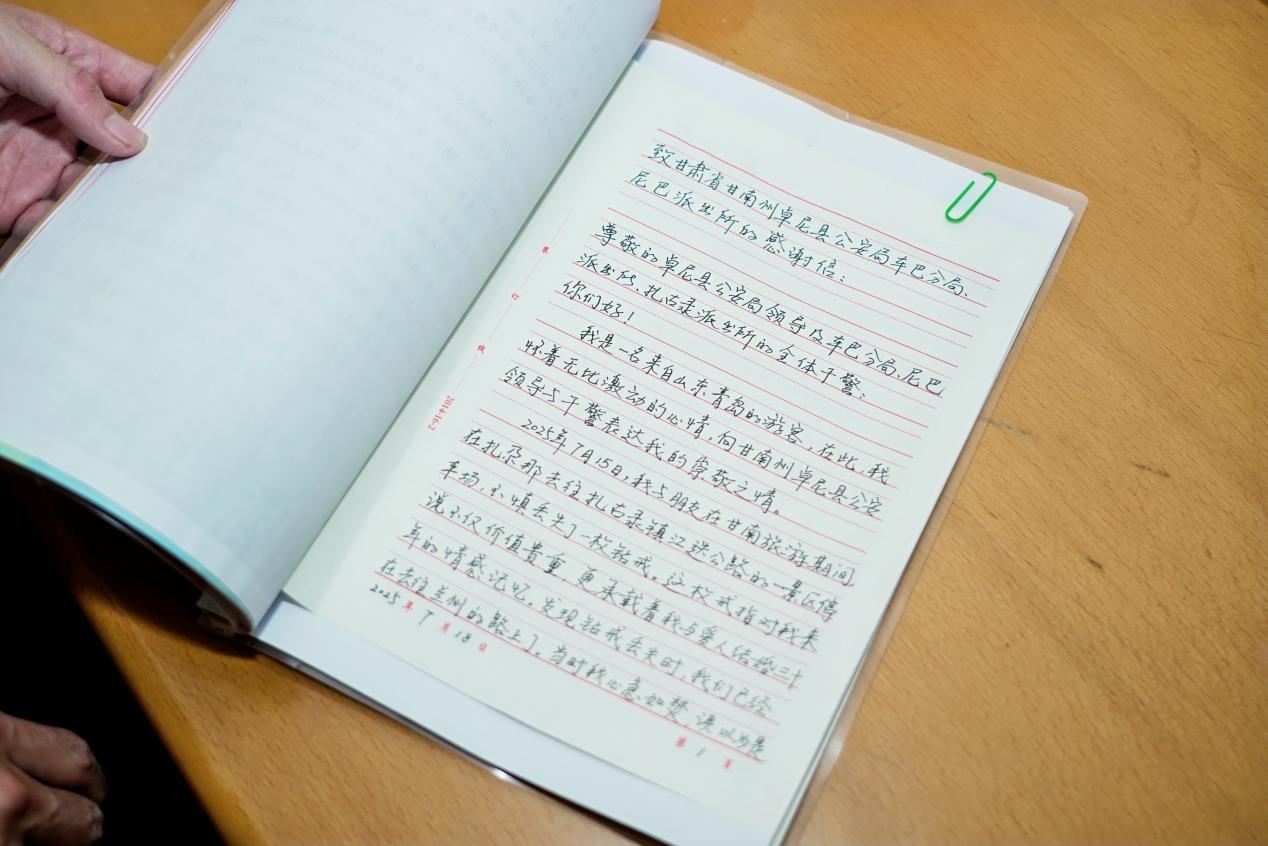 致甘肃省甘南州卓尼县公安局车巴分局、
尼巴派出所的感谢信:
尊敬的卓尼县公安局领导及车巴分局、尼巴
派出所、扎古录派出所的全体干警:
你们好!
我是一名来自山东青岛的游客,在此,我
怀着无比激动的心情,向甘南州卓尼县公安
领导与干警表达我的崇敬之情。
2025年7月15日,我与朋友在甘南旅游期间,
在扎尕那去往扎古录镇江迭公路的一景区停
车场,不慎丢失了一枚钻戒。这枚戒指对我来
说不仅价值贵重,更承载着我与爱人结婚三十
年的情感记忆。发现钻戒丢失时,我们已经
在去往兰州的路上了。当时我心急如焚,误以为是
2025年7月18日
第1页
装订线
2014·16·2